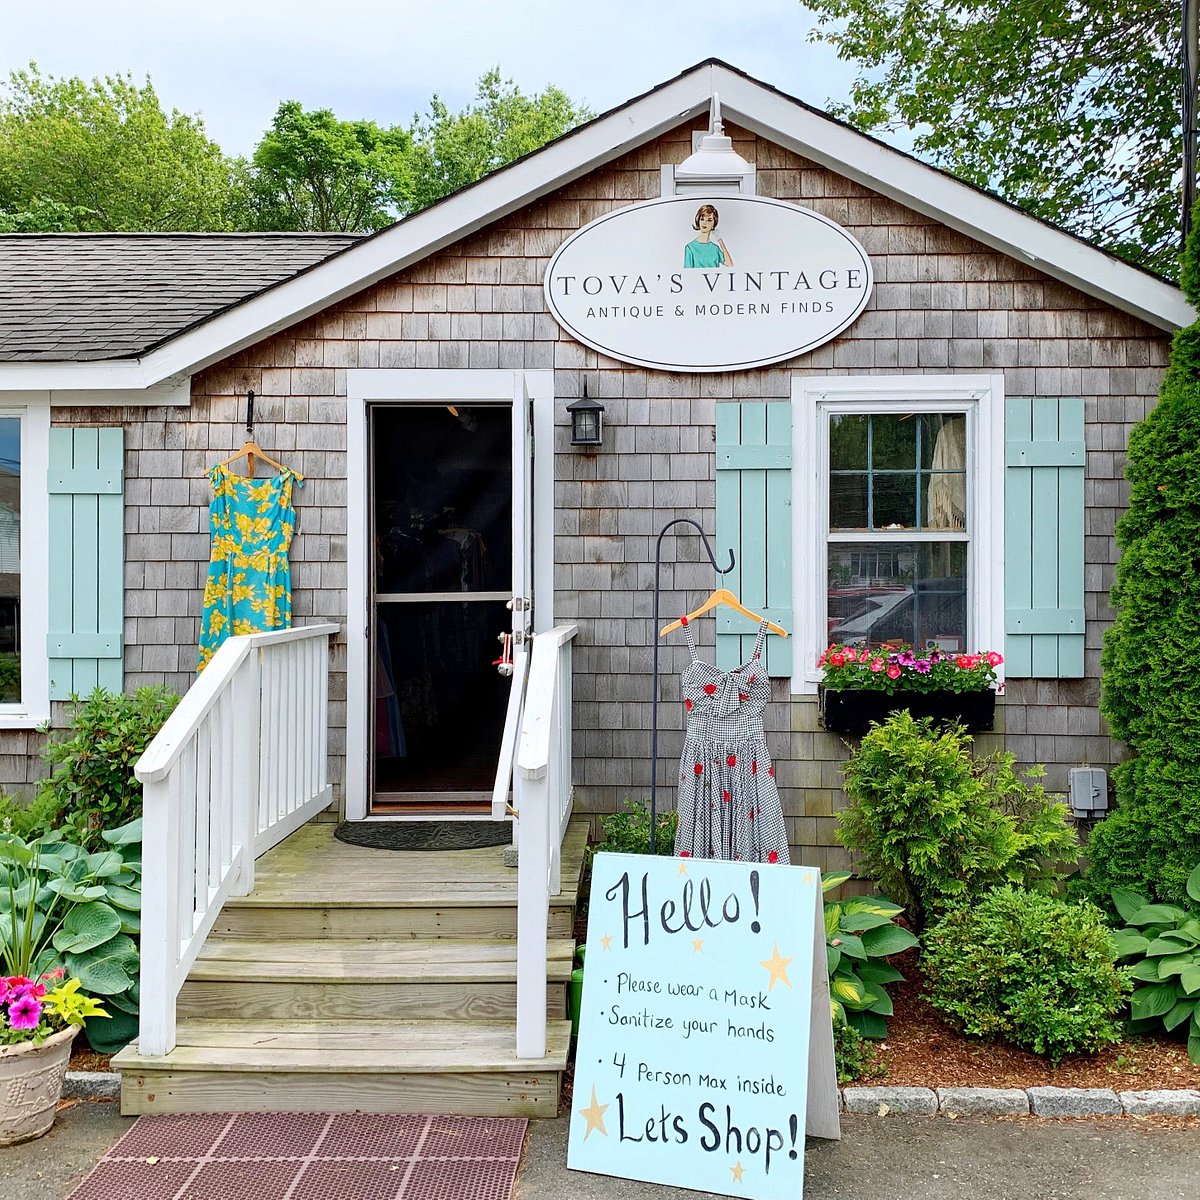 TOVA'S VINTAGE
ANTIQUE & MODERN FINDS
Hello!
• Please wear a Mask
• Sanitize your hands
• 4 Person Max inside
Lets Shop!